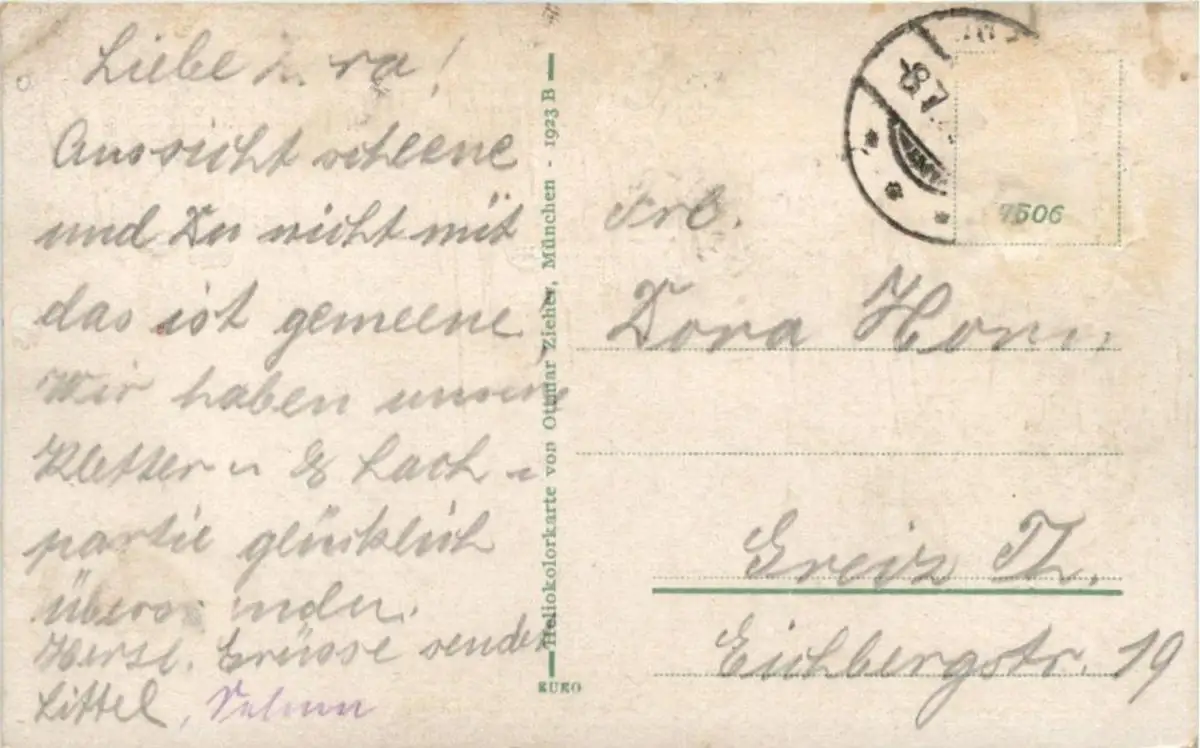 Liebe ra!
Aussicht scheene
und Du nicht mit
das ist gemeene
Wir haben unsere
Kletter u Lach -
partie glücklich
überwunden.
Herzl. Grüsse sendet
Littel,
Heliokolorkarte von Ottmar Zieher, München - 1923 B
EUKO
8 7
7506
Frl.
Dora
Greiz Th.
Eichbergstr. 19